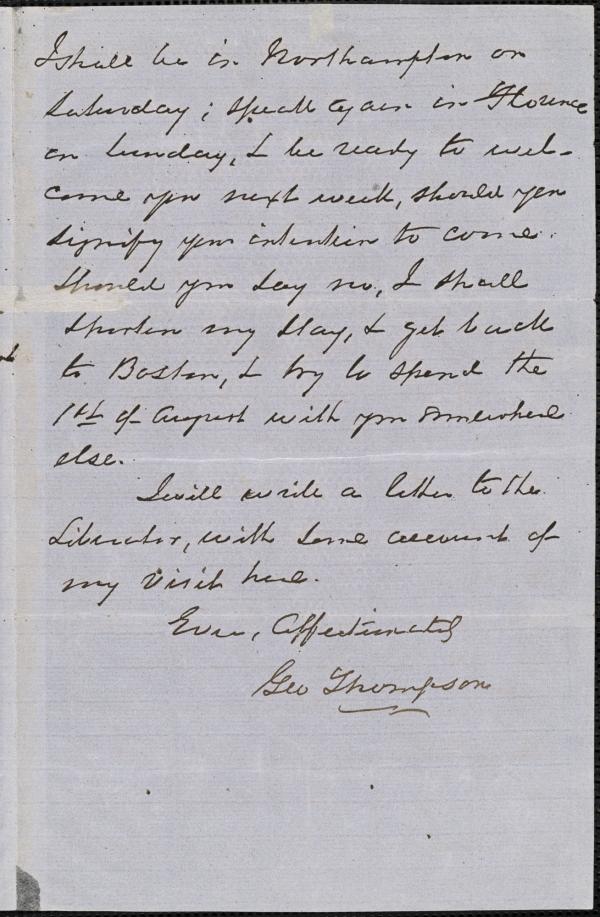 I shall be in Northampton on
Saturday; speak again in Florence
on Sunday, & be ready to wel-
come you next week, should you
signify your intention to come.
Should you say no, I shall
shorten my stay, & get back
to Boston, & try to spend the
1st of August with you somewhere
else.
I will write a letter to the
Liberator, with some account of
my visit here.
Ever, Affectionately
Geo Thompson